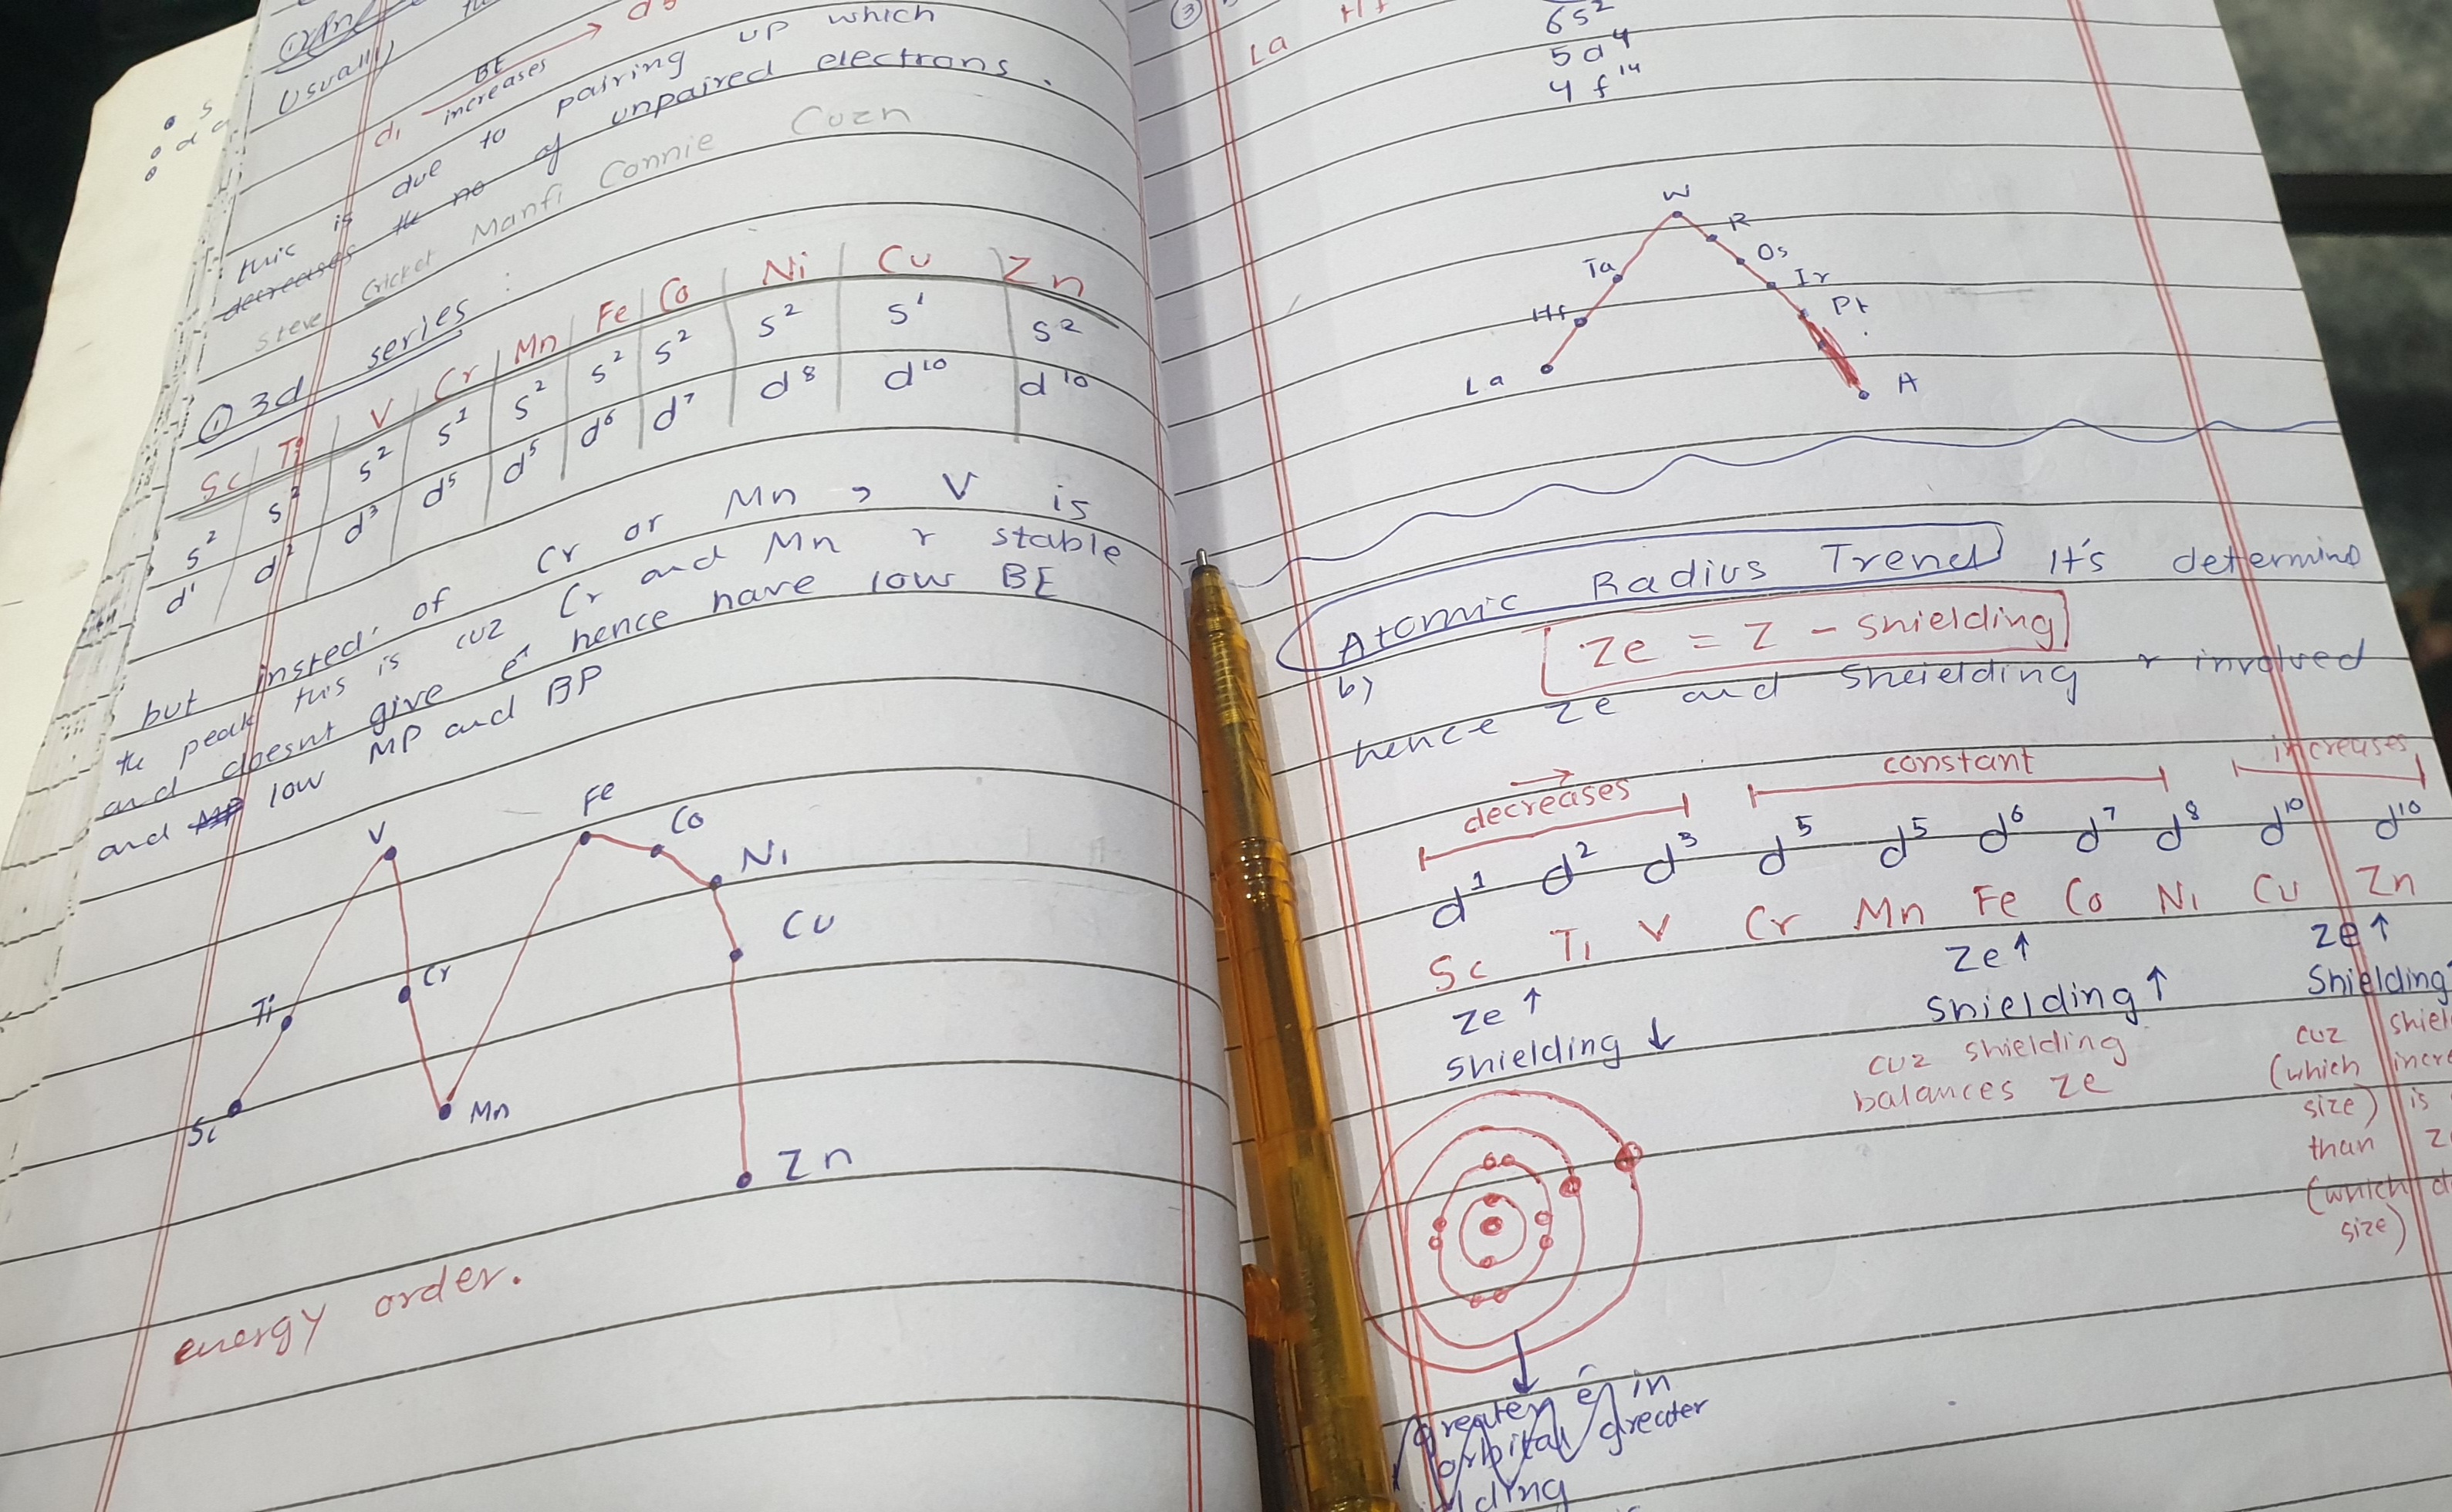 Usually
d1 BE increases → d5
this is due to pairing up which
decreases the no of unpaired electrons.
Steve Cricket Manfi Connie Cuzn
① 3d series :
Sc Ti V Cr Mn Fe Co Ni Cu Zn
s² s² s² s¹ s² s² s² s² s¹ s²
d¹ d² d³ d⁵ d⁵ d⁶ d⁷ d⁸ d¹⁰ d¹⁰
but insted of Cr or Mn, V is
the peak this is cuz Cr and Mn r stable
and doesnt give e⁻ hence have low BE
and MP low MP and BP
V
Fe
Co
Ni
Cu
Cr
Ti
Sc
Mn
Zn
energy order.
③
La Hf
6s²
5d⁴
4f¹⁴
W
R
Os
Ta
Ir
Hf
Pt
La
A
Atomic Radius Trend It's determind
b) Ze = Z - shielding
hence Ze and Sheielding r involved
decreases constant increases
d¹ d² d³ d⁵ d⁵ d⁶ d⁷ d⁸ d¹⁰ d¹⁰
Sc Ti V Cr Mn Fe Co Ni Cu Zn
Ze ↑ Ze ↑ Ze ↑
Shielding ↓ Shielding ↑ Shielding
cuz shielding
balances Ze
cuz shiel
(which incre
size) is
than Z
(which d
size)
greater e⁻ in
orbital greater
lding